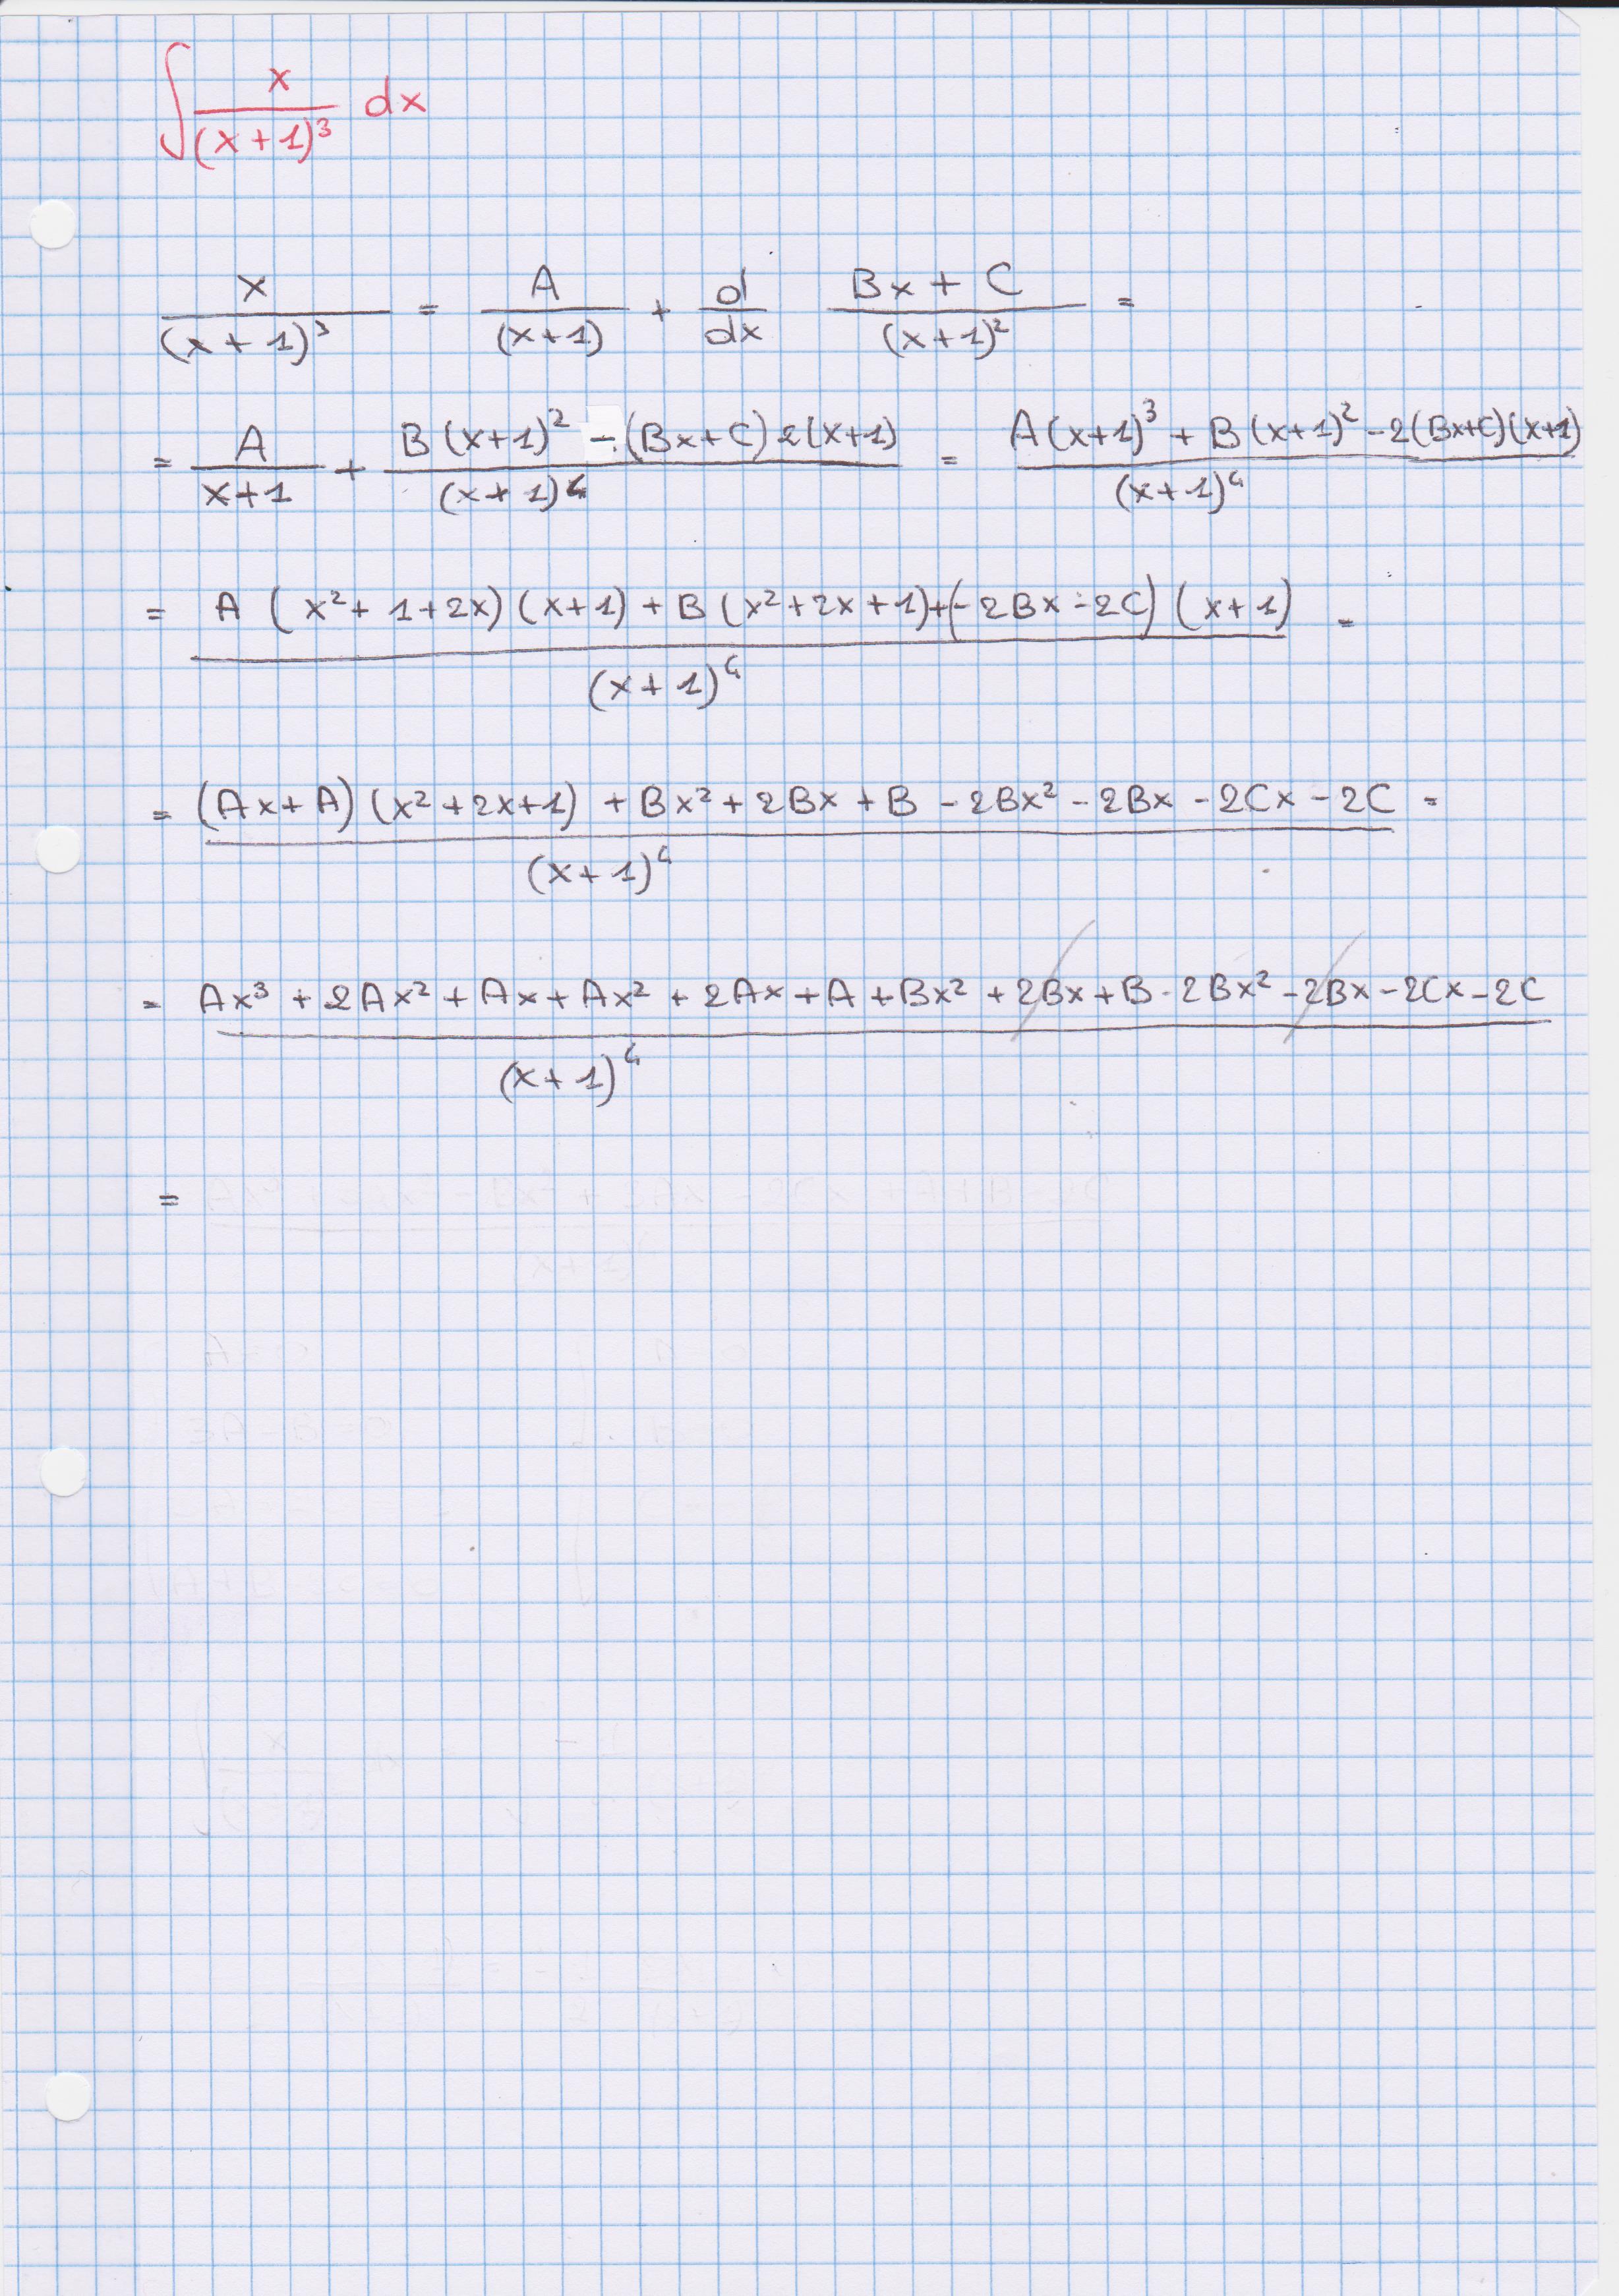 ∫ x/(x+1)³ dx
x/(x+1)³ = A/(x+1) + d/dx (Bx+C)/(x+1)² =
= A/(x+1) + [B(x+1)² - (Bx+C)2(x+1)]/(x+1)⁴ = [A(x+1)³ + B(x+1)² - 2(Bx+C)(x+1)]/(x+1)⁴
= [A(x²+1+2x)(x+1) + B(x²+2x+1) + (-2Bx-2C)(x+1)]/(x+1)⁴ =
= [(Ax+A)(x²+2x+1) + Bx² + 2Bx + B - 2Bx² - 2Bx - 2Cx - 2C]/(x+1)⁴ =
= [Ax³ + 2Ax² + Ax + Ax² + 2Ax + A + Bx² + 2Bx + B - 2Bx² - 2Bx - 2Cx - 2C]/(x+1)⁴
=